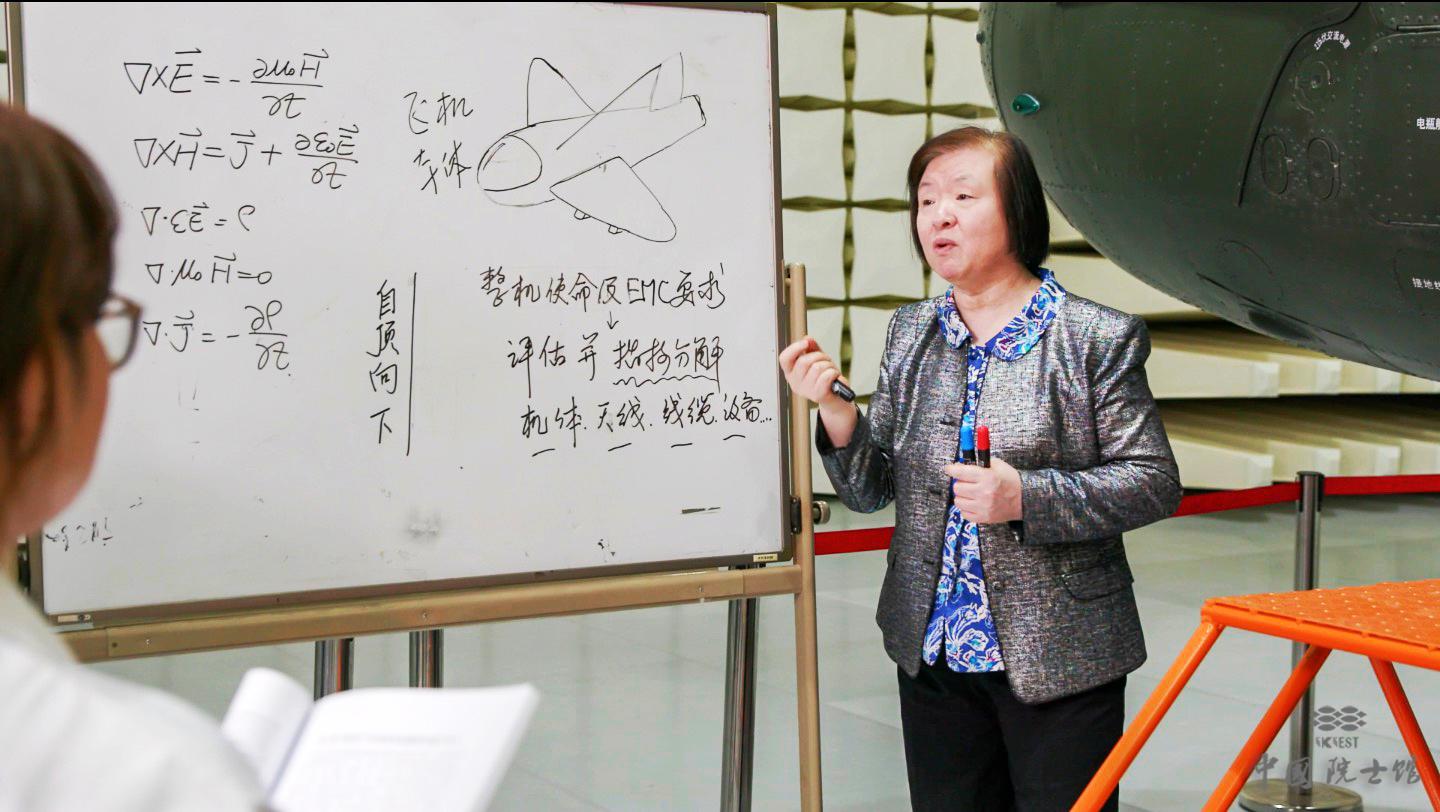 ∇×E⃗ = - ∂μ₀H⃗/∂t
∇×H⃗ = J⃗ + ∂ε₀E⃗/∂t
∇·εE⃗ = ρ
∇·μ₀H⃗ = 0
∇·J⃗ = - ∂ρ/∂t
飞机
壳体
自顶向下
整机使命及EMC要求
↓
评估并指标分解
机体.天线.线缆.设备...
电瓶
接地
IKCEST
中國院士馆